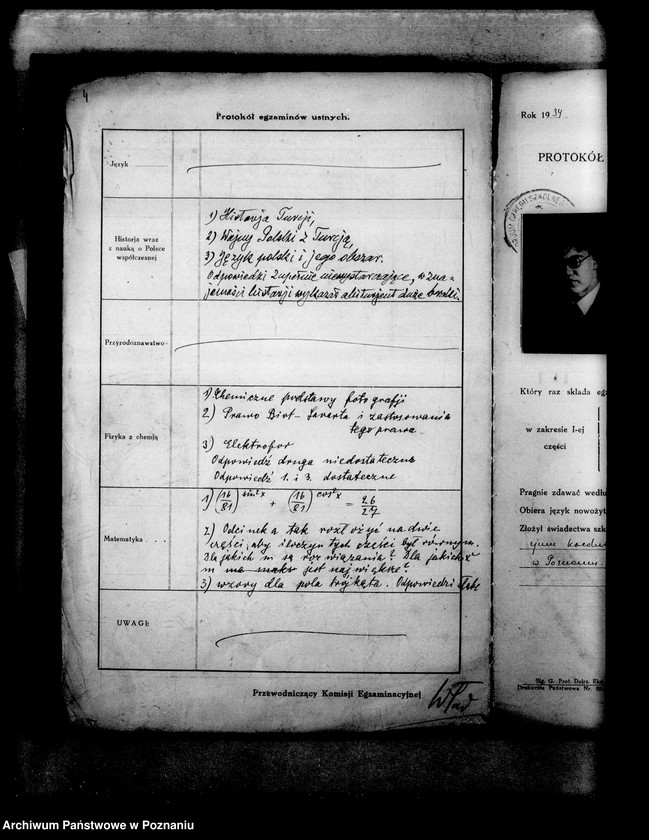 4
Protokół egzaminów ustnych.
Język
Historja wraz
z nauką o Polsce
współczesnej
1) Historja Turcji,
2) Wojny Polski z Turcją,
3) Język polski i jego obszar.
Odpowiedzi zupełnie niewystarczające, w zna-
jomości historji wykazał abiturjent duże braki.
Przyrodoznawstwo
Fizyka z chemją
1) Chemiczne podstawy fotografji
2) Prawo Biot-Savarta i zastosowania
tego prawa.
3) Elektrofor
Odpowiedź druga niedostateczna
Odpowiedź 1. i 3. dostateczne
Matematyka . . . .
1) (16/81)^sin²x + (16/81)^cos²x = 26/27
2) Odcinek a tak rozłożyć na dwie
części, aby iloczyn tych części był równy m.
Dla jakich m są rozwiązania? Dla jakich x
m jest największe?
3) wzory dla pola trójkąta. Odpowiedzi słabe
UWAGI:
Przewodniczący Komisji Egzaminacyjnej
Rok 1934
PROTOKÓŁ
Który raz składa
w zakresie I-ej
części
Pragnie zdawać według
Obiera język nowożyt
Złożył świadectwa szk
w Poznaniu
Druk­arnia Państwowa Nr.
Archiwum Państwowe w Poznaniu